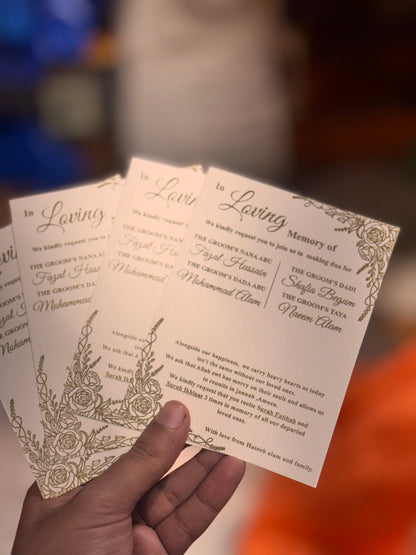 In Loving Memory of
We kindly request you to join us in making dua for
THE GROOM'S NANA ABU
Fazal Hussain
THE GROOM'S DADA ABU
Mohammad Alam
THE GROOM'S DADI
Shafia Begum
THE GROOM'S TAYA
Naeem Alam
Alongside our happiness, we carry heavy hearts as today
isn't the same without our loved ones.
We ask that Allah swt has mercy on their souls and allows us
to reunite in jannah ,Ameen.
We kindly request that you recite Surah Fatihah and
Surah Ikhlaas 3 times in memory of all our departed
loved ones.
With love from Haseeb alam and family.
In Loving
We kindly request you
THE GROOM'S NANA
Fazal Huss
THE GROOM'S DADA
Mohammad
Alongside o
We ask that A
We kindl
Surah I
In Loving
We kindly request you to
THE GROOM'S NANA
Fazal Huss
THE GROOM'S DADA
Mohammad
We
THE GROO
THE GROO
Moham